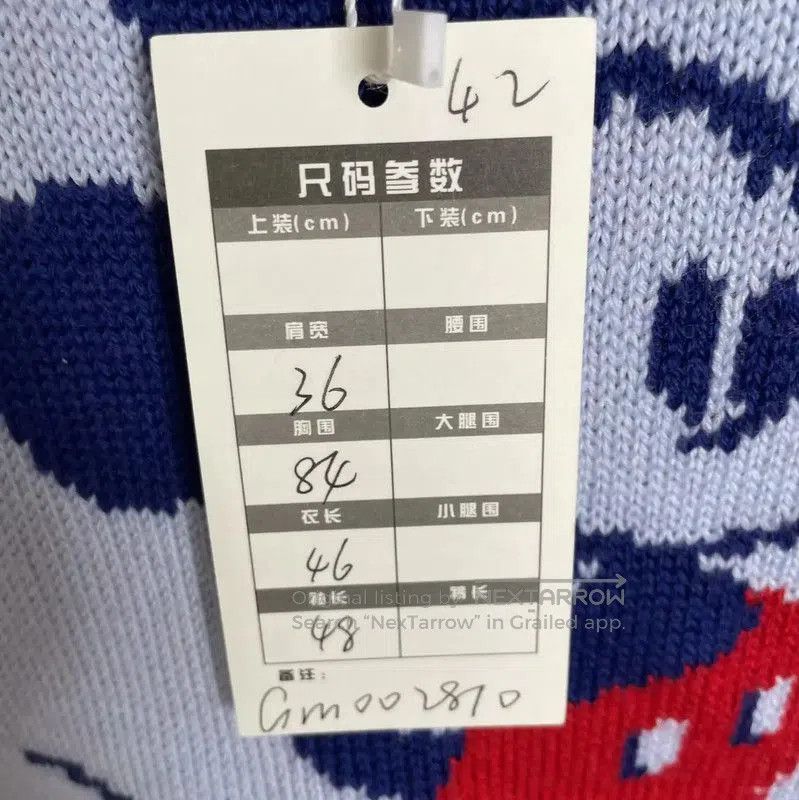 42
尺码参数
上装(cm) 下装(cm)
肩宽 腰围
36
胸围 大腿围
84
衣长 小腿围
46
袖长 裤长
48
Original listing by NEXTARROW
Search "NexTarrow" in Grailed app.
备注:
Gm002810